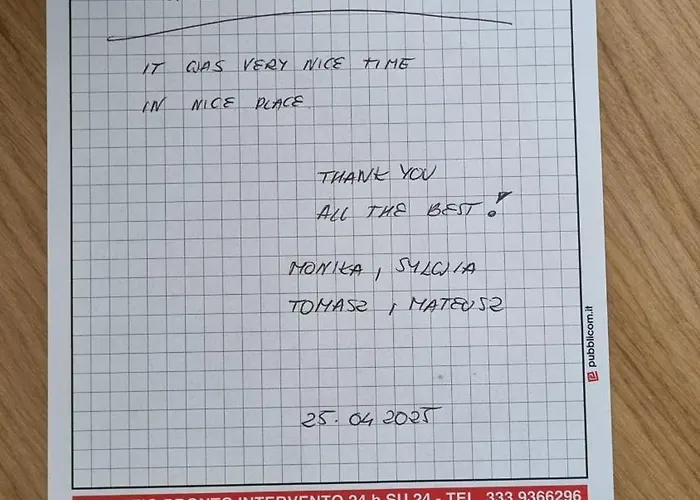 IT WAS VERY NICE TIME
IN NICE PLACE
THANK YOU
ALL THE BEST!
MONIKA, SYLWIA
TOMASZ, MATEUSZ
25.04 2025
pubblicom.it
PRONTO INTERVENTO 24 h SU 24 - TEL. 333.9366296